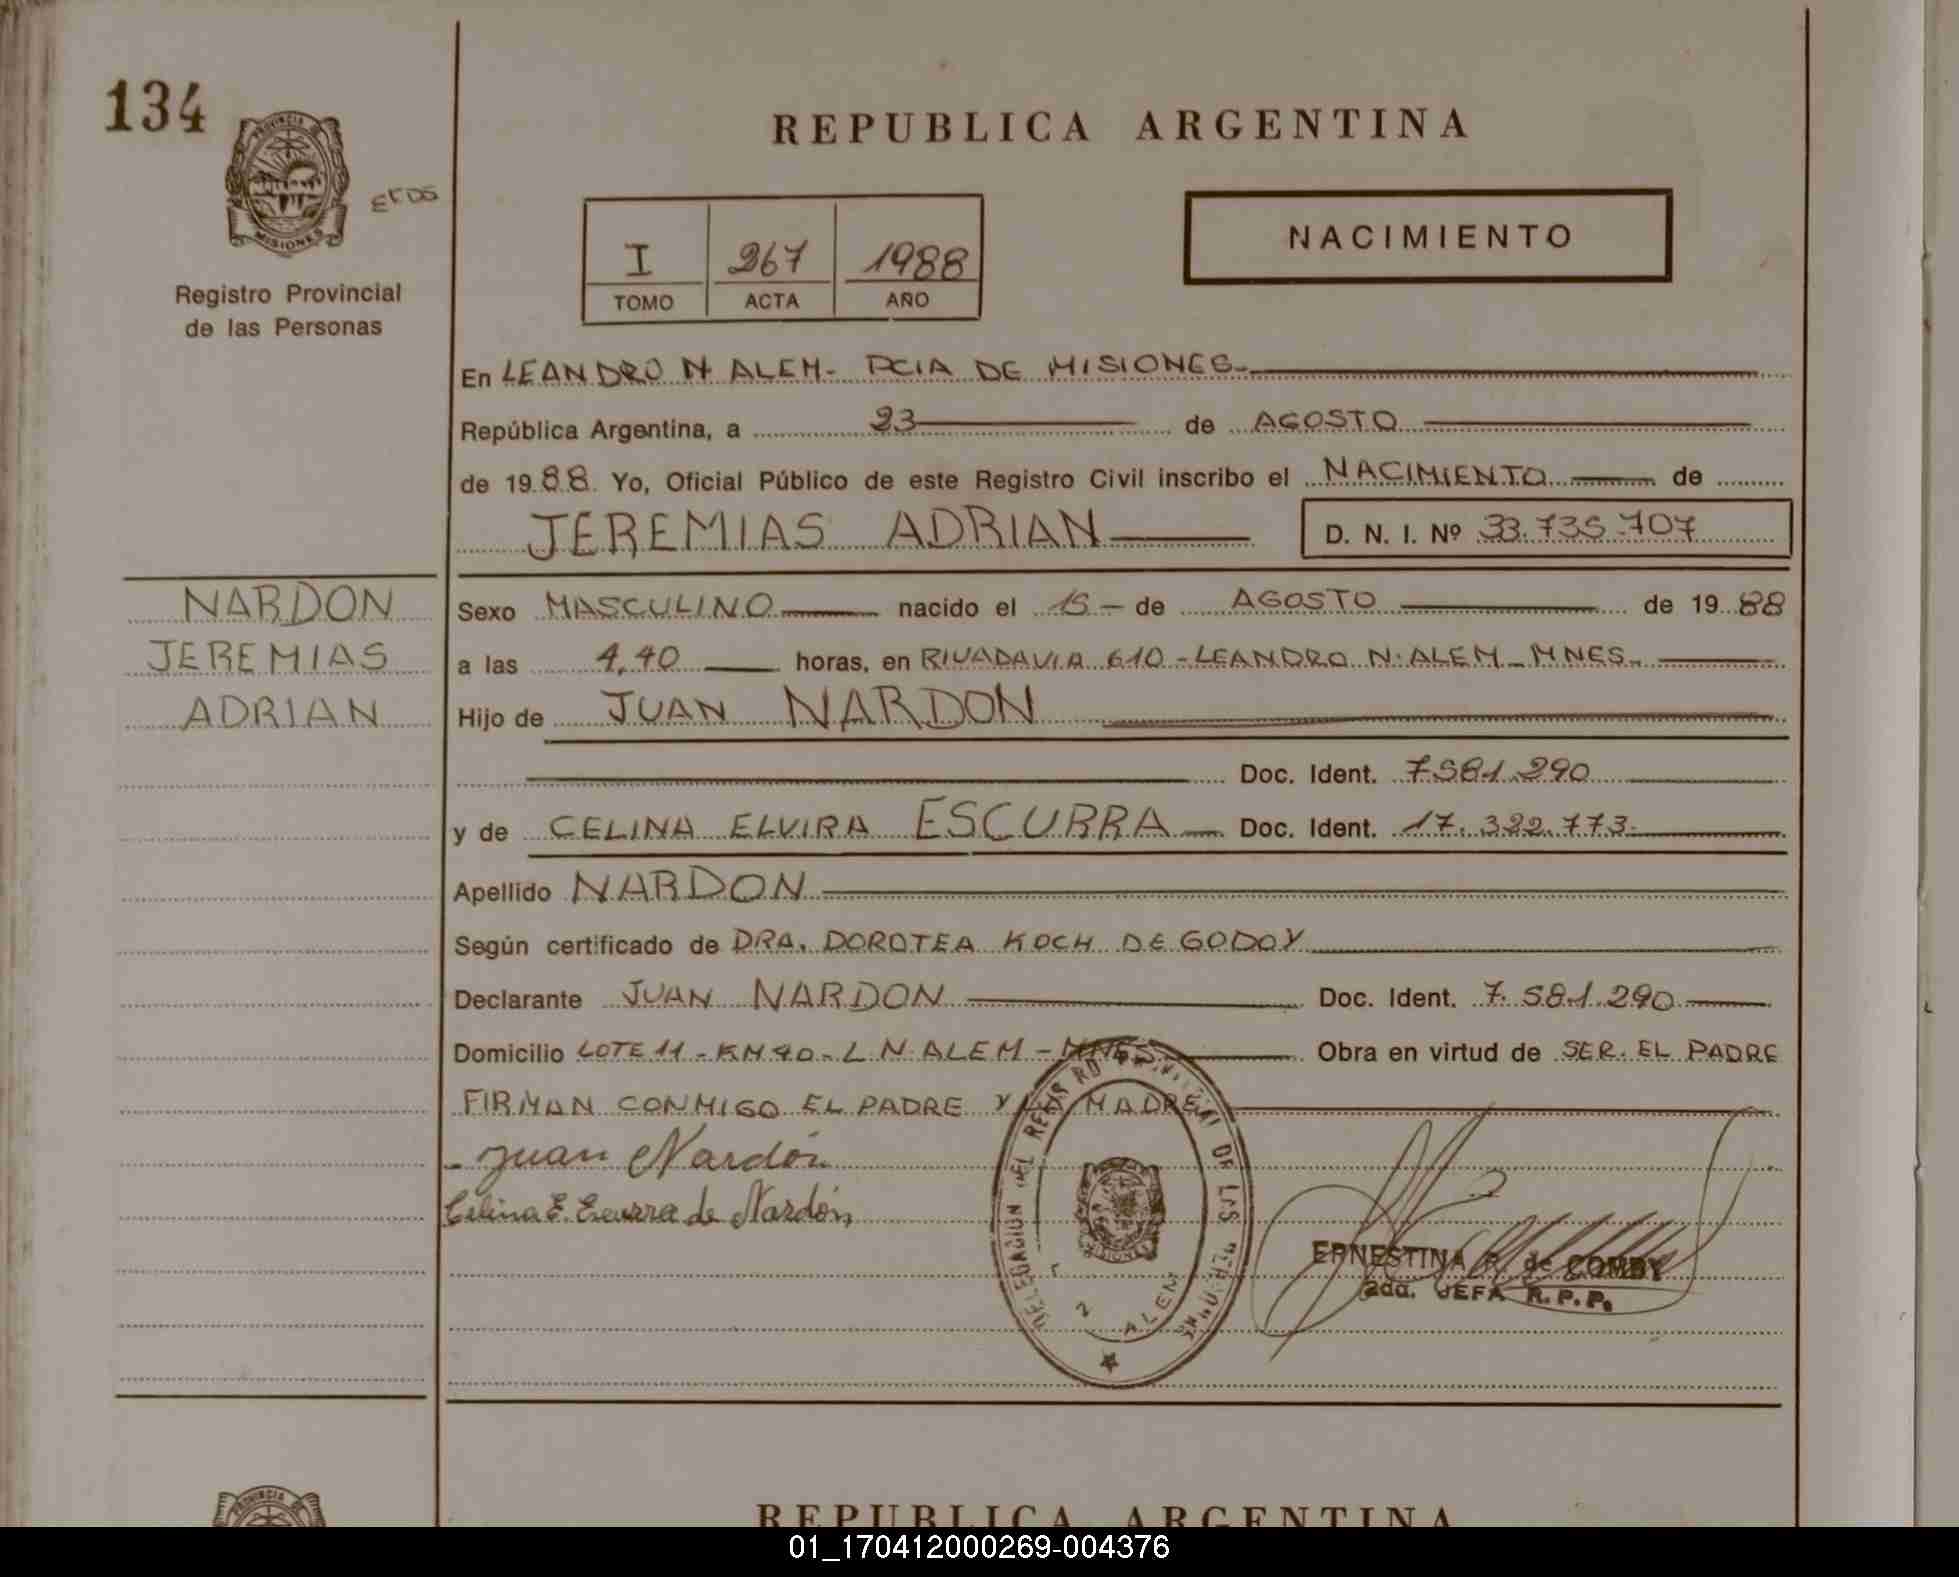 134
PROVINCIA DE
MISIONES
Registro Provincial
de las Personas
REPUBLICA ARGENTINA
NACIMIENTO
I 267 1988
TOMO ACTA AÑO
En LEANDRO N ALEM - PCIA DE MISIONES.
República Argentina, a 23 de AGOSTO
de 1988. Yo, Oficial Público de este Registro Civil inscribo el NACIMIENTO de
JEREMIAS ADRIAN D. N. I. Nº 33.735.707
NARDON
JEREMIAS
ADRIAN
Sexo MASCULINO nacido el 15 de AGOSTO de 1988
a las 4,40 horas, en RIVADAVIA 610 - LEANDRO N. ALEM - MNES.
Hijo de JUAN NARDON
Doc. Ident. 7.581.290
y de CELINA ELVIRA ESCURRA Doc. Ident. 17.322.773
Apellido NARDON
Según certificado de DRA. DOROTEA KOCH DE GODOY
Declarante JUAN NARDON Doc. Ident. 7.581.290
Domicilio LOTE 11 - KM 40 - L N ALEM - MNES Obra en virtud de SER EL PADRE
FIRMAN CONMIGO EL PADRE Y MADRE
Juan Nardón
Celina E. Escurra de Nardón
DELEGACION DEL REGISTRO PROVINCIAL DE LAS PERSONAS
2 ALEM
ERNESTINA R. de COMBY
2da. JEFA R.P.P.
PROVINCIA DE
REPUBLICA ARGENTINA
01_170412000269-004376